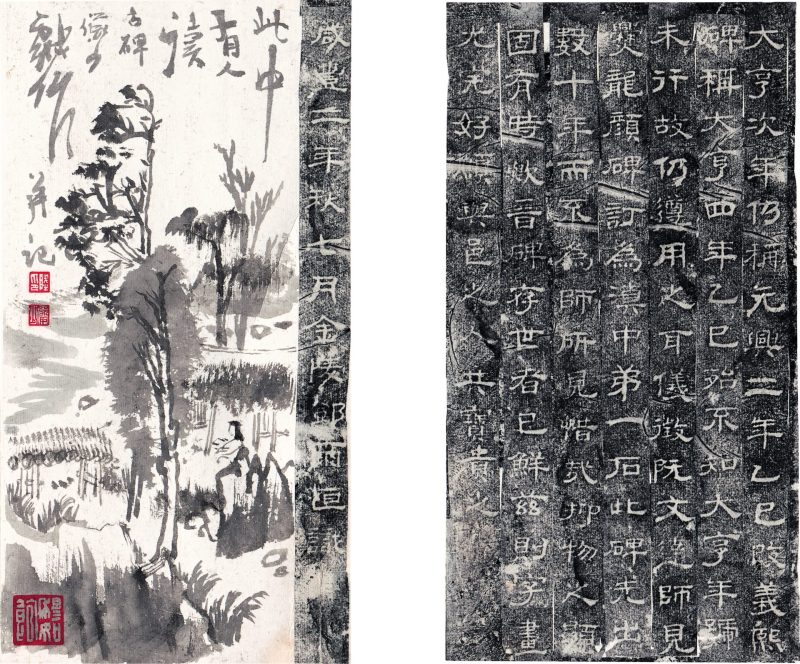 大亨次年仍稱元興二年乙巳改義熙
碑稱大亨四年乙巳殆不知大亨年號
未行故仍遵用之耳儀徵阮文達師見
爨龍顏碑訂為滇中弟一石此碑先出
數十年而不為師所見惜哉抑物之顯
固有時歟晉碑存世者已鮮茲則字畫
尤完好願與邑人共寶貴之
咸豐二年秋七月金陵鄧爾恒識
此中
有人
讀
古碑
并記